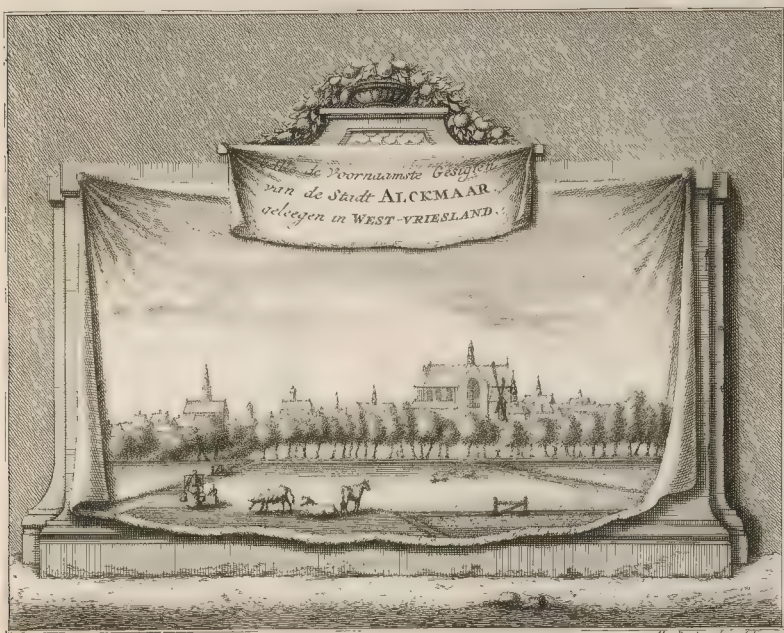 de Voornaamste Gesigten
van de Stadt ALCKMAAR,
geleegen in WEST-VRIESLAND.